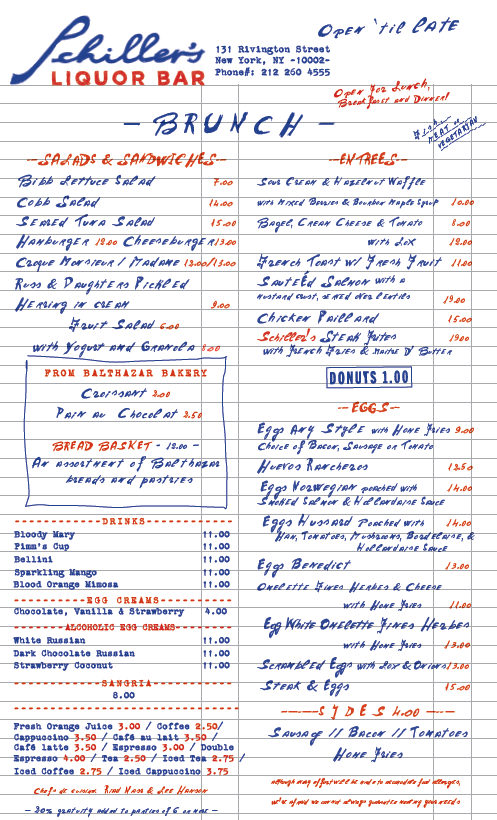 Schiller's
LIQUOR BAR
131 Rivington Street
New York, NY -10002-
Phone#: 212 260 4555
OPEN 'til LATE
OPEN FOR LUNCH,
BreakFast and Dinner!
MEAT or
VEGETARIAN
- BRUNCH -
--SALADS & SANDWICHES--
Bibb Lettuce Salad 7.00
Cobb Salad 14.00
Seared Tuna Salad 15.00
Hamburger 12.00 Cheeseburger 13.00
Croque Monsieur / Madame 12.00/13.00
Russ & Daughters Pickled
Herring in cream 9.00
Fruit Salad 6.00
with Yogurt and Granola 8.00
FROM BALTHAZAR BAKERY
Croissant 2.00
Pain au Chocolat 2.50
BREAD BASKET - 12.00 -
An assortment of Balthazar
breads and pastries
DRINKS
Bloody Mary 11.00
Pimm's Cup 11.00
Bellini 11.00
Sparkling Mango 11.00
Blood Orange Mimosa 11.00
EGG CREAMS
Chocolate, Vanilla & Strawberry 4.00
ALCOHOLIC EGG CREAMS
White Russian 11.00
Dark Chocolate Russian 11.00
Strawberry Coconut 11.00
SANGRIA
8.00
Fresh Orange Juice 3.00 / Coffee 2.50/
Cappuccino 3.50 / Café au lait 3.50 /
Café latte 3.50 / Espresso 3.00 / Double
Espresso 4.00 / Tea 2.50 / Iced Tea 2.75 /
Iced Coffee 2.75 / Iced Cappuccino 3.75
Chefs de cuisine Riad Nasr & Lee Hanson
- 20% gratuity added to parties of 6 or more -
--ENTREES--
Sour Cream & Hazelnut Waffle
with Mixed Berries & Bourbon Maple Syrup 10.00
Bagel, Cream Cheese & Tomato 8.00
with Lox 12.00
French Toast w/ Fresh Fruit 11.00
Sauteéd Salmon with a
mustard crust, served over lentils 19.00
Chicken Paillard 15.00
Schiller's Steak Frites 19.00
with French Fries & Maitre D' Butter
DONUTS 1.00
--EGGS--
Eggs Any Style with Home Fries 9.00
Choice of Bacon, Sausage or Tomato
Huevos Rancheros 12.50
Eggs Norwegian poached with 14.00
Smoked Salmon & Hollandaise Sauce
Eggs Hussard Poached with 14.00
Ham, Tomatoes, Mushrooms, Bordelaise, &
Hollandaise Sauce
Eggs Benedict 13.00
Omelette Fines Herbes & Cheese
with Home Fries 11.00
Egg White Omelette Fines Herbes
with Home Fries 13.00
Scrambled Eggs with Lox & Onions 13.00
Steak & Eggs 15.00
SIDES 4.00
Sausage // Bacon // Tomatoes
Home Fries
although every effort will be made to accomodate food allergies,
we're afraid we cannot always guarantee meeting your needs